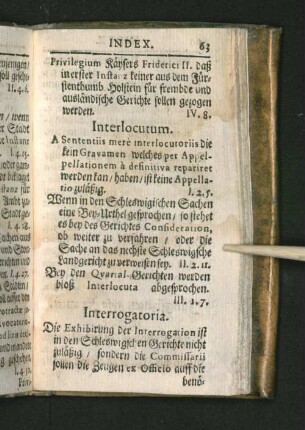 INDEX. 63
Privilegium Käysers Friderici II. daß
in erster Insta z keiner aus dem Für-
stenthumb Holstein für frembde und
ausländische Gerichte sollen gezogen
werden. IV. 8.
Interlocutum.
A Sententiis merè interlocutoriis die
kein Gravamen welches per Ap; el-
pellationem à definitiva repariret
werden kan / haben / ist keine Appella-
tio zuläßig. I. 2. 5.
Wenn in den Schleswigischen Sachen
eine Bey-Urthel gesprochen / so stehet
es bey des Gerichtes Consideration,
ob weiter zu verfahren / oder die
Sache an das nechste Schleswigische
Landgericht zu verweisen sey. II. 2. 11.
Bey den Quartal-Gerichten werden
bloß Interlocuta abgesprochen.
III. 1. 7.
Interrogatoria.
Die Exhibirung der Interrogation ist
in den Schleswigischen Gerichte nicht
zuläßig / sondern die Commissarii
sollen die Zeugen ex Officio auff die
benö-